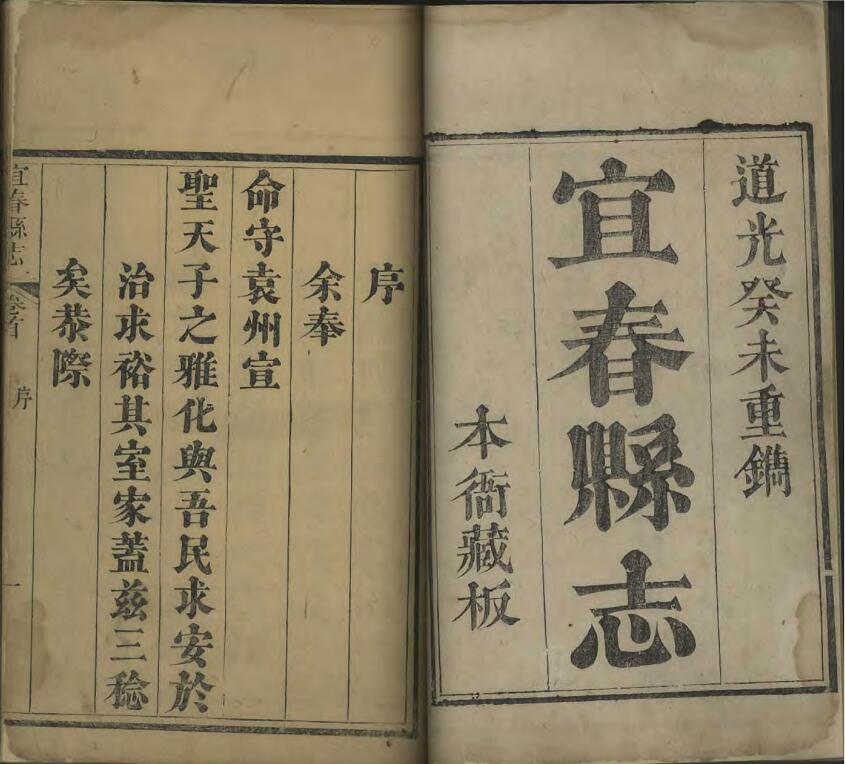 道光癸未重鐫
宜春縣志
本衙藏板
序
余奉
命守袁州宣
聖天子之雅化與吾民求安於
治求裕其室家蓋兹三稔
矣恭際
宜春縣志
卷首
序
一